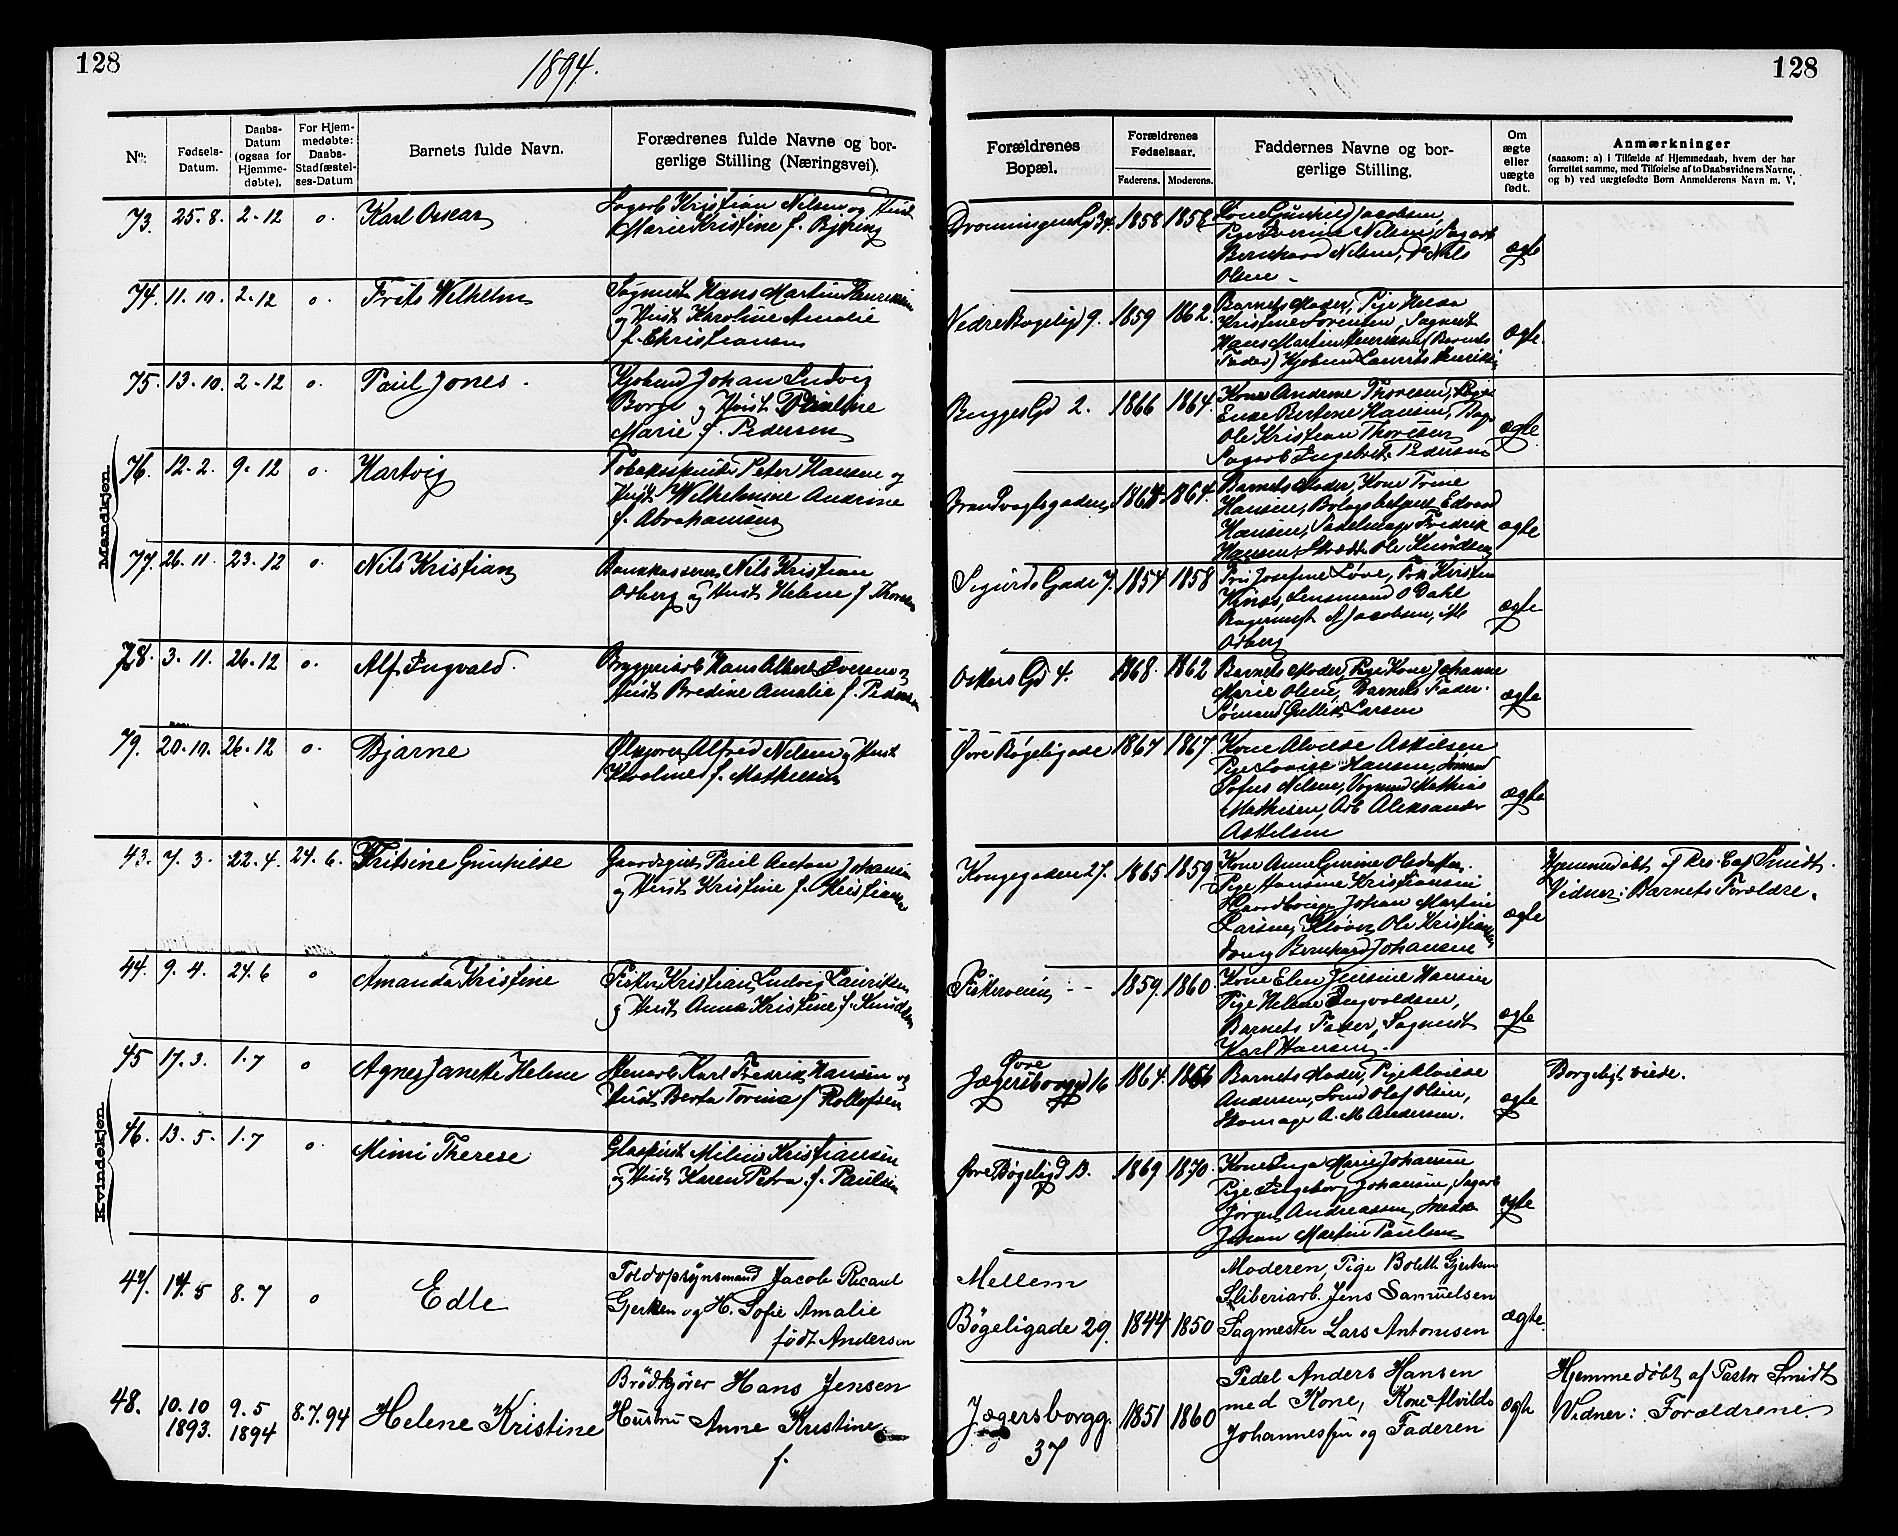 128
1894.
128
No:
Fødsels-Datum.
Daabs-Datum (ogsaa for Hjemme-døbte).
For Hjem-medøbte: Daabs-Stadfæstel-ses-Datum
Barnets fulde Navn.
Forædrenes fulde Navne og bor-gerlige Stilling (Næringsvei).
Forældrenes Bopæl.
Forældrenes Fødselsaar.
Faderens.
Moderens.
Faddernes Navne og bor-gerlige Stilling.
Om ægte eller uægte født.
Anmærkninger
(saasom: a) i Tilfælde af Hjemmedaab, hvem der har
forrettet samme, med Tilføielse af to Daabsvidners Navne,
og b) ved uægtefødte Børn Anmelderens Navn m. V.
Mandkjøn
73. 25.8. 2-12 o. Karl Oscar
Sagarb Kristian Nilsen og Hust
Marie Kristine f. Bjøring
Dronningens Gd 34. 1858 1858
Kone Gunhild Jacobsen,
Pige Severine Nilsen, Sagarb
Bernhard Nilsen, Do Nils
Olsen -
ægte
74. 11.10. 2-12 o. Frits Wilhelm
Sagmest Hans Martin Henriksen
og Hust Karoline Amalie
f. Christiansen
Nedre Bøgeligd 9. 1859 1862.
Barnets Moder, Pige Helsa
Kristine Sørensen, Sagmest
Hans Martin Henriksen (Barnets
Fader) Kjøbmd Laurits Henriksen
ægte.
75. 13-10. 2-12 o. Paul Jones.
Kjøbmd Johan Ludvig
Borge og Hust Pauline
Marie f. Pedersen
Brygges Gd 2. 1866 1864.
Kone Andrine Thoresen,
Enke Bertine Hansen,
Ole Kristian Thoresen
Sagarb Engebret Pedersen
ægte
76. 12-2. 9-12 o. Hartvig
Tobaksspinder Peter Hansen og
Hust Wilhelmine Andrine
f. Abrahamsen
Brandvagtsgaden 1864. 1864.
Barnets Moder, Kone Trine
Hansen, Bolagsbetjent Edvard
Hansen, Sadelmager Fredrik
Hansen, Skrædd. Ole Knudsen
ægte
77. 26.11. 23-12 o. Nils Kristian
Bankkasserer Nils Kristian
Odberg og Hust Helene f Thoresen
Sigurds Gade 7. 1854 1858
Fru Josefine Løve, Frk Kirsten
Lensmand O Dahl
Bagermest A Jacobsen,
Odberg
ægte
78. 3-11. 26-12 o. Alf Ingvald.
Bryggeriarb Hans Albert Iversen og
Hust Bredine Amalie f. Pedersen
Oskars Gd 4. 1868. 1862
Barnets Moder, Kone Johanne
Marie Olsen, Barnets Fader.
Sømand Gullik Larsen
ægte
79. 20-10. 26-12 o. Bjarne
Ølkjører Alfred Nilsen og Hust
Karoline f. Mathisen
Øvre Bøgeligade 1867 1867.
Kone Alvilde Askilsen
Pige Lovise Hansen, Sømand
Sofus Nilsen, Vognmd Mathias
Mathisen, Arb Aleksander
Askelsen
ægte
Kvindekjøn
43. 7.3. 22.4. 24.6. Fritsine Gunhilde
Gaardsgut Paul Anton Johansen
og Hust Kristine f. Kristiansen
Kongegaden 27. 1865 1859
Kone Anne Gurine Oledatter.
Pige Hansine Kristiansen
Johan Martin
Larsen, Ole Kristiansen
Bernhard Johansen
ægte
Hjemmedøbt af Res. Cap Smidt.
Vidner: Barnets Forældre.
44. 9.4. 24.6 o Amanda Kristine
Fisker Kristian Ludvig Lauritsen
og Hust Anna Kristine f. Knudsen
Fiskerveien - - 1859. 1860.
Kone Elen Juline Hansen
Pige Helene Ingvoldsen,
Barnets Fader, Sagmest
Karl Hansen.
ægte
45 17.3. 1.7 o Agnes Janette Helene
Stenarb Karl Fredrik Hansen og
Hust Berta Torine f Rollefsen
Øvre
Jægersborggd 16 1864. 1866
Barnets Moder, Pige Alvilde
Andersen, Smd Olaf Olsen,
Skomager A. M. Andersen.
ægte
Borgeligt viede.
46. 13.5. 1.7 o Mimi Therese
Glaspust Milius Kristiansen
og Hust Karen Petra f. Paulsen
Øvre Bøgeligd 13. 1869 1870.
Kone Inga Marie Johansen
Pige Ingeborg Johansen, Sagarb
Jørgen Andreassen, Smed
Johan Martin Paulsen
ægte
47. 14.5 8.7 o Edle
Toldopsynsmand Jacob Ricard
Gjerken og H. Sofie Amalie
født Andersen
Mellem
Bøgeligade 29. 1844 1850
Moderen, Pige Boleth Gjerksen
Sliberiarb. Jens Samuelsen
Sagmester Lars Antonisen
ægte.
48. 10.10 1893. 9.5 1894 8.7.94 Helene Kristine
Brødkjører Hans Jensen
Hustru Anne Kristine
f.
Jægersborgg.
37
1851 1860
Pedel Anders Hansen
med Kone, Kone Alvilde
Johannesen og Faderen
ægte
Hjemmedøbt af Pastor Smidt
Vidner: Forældrene.